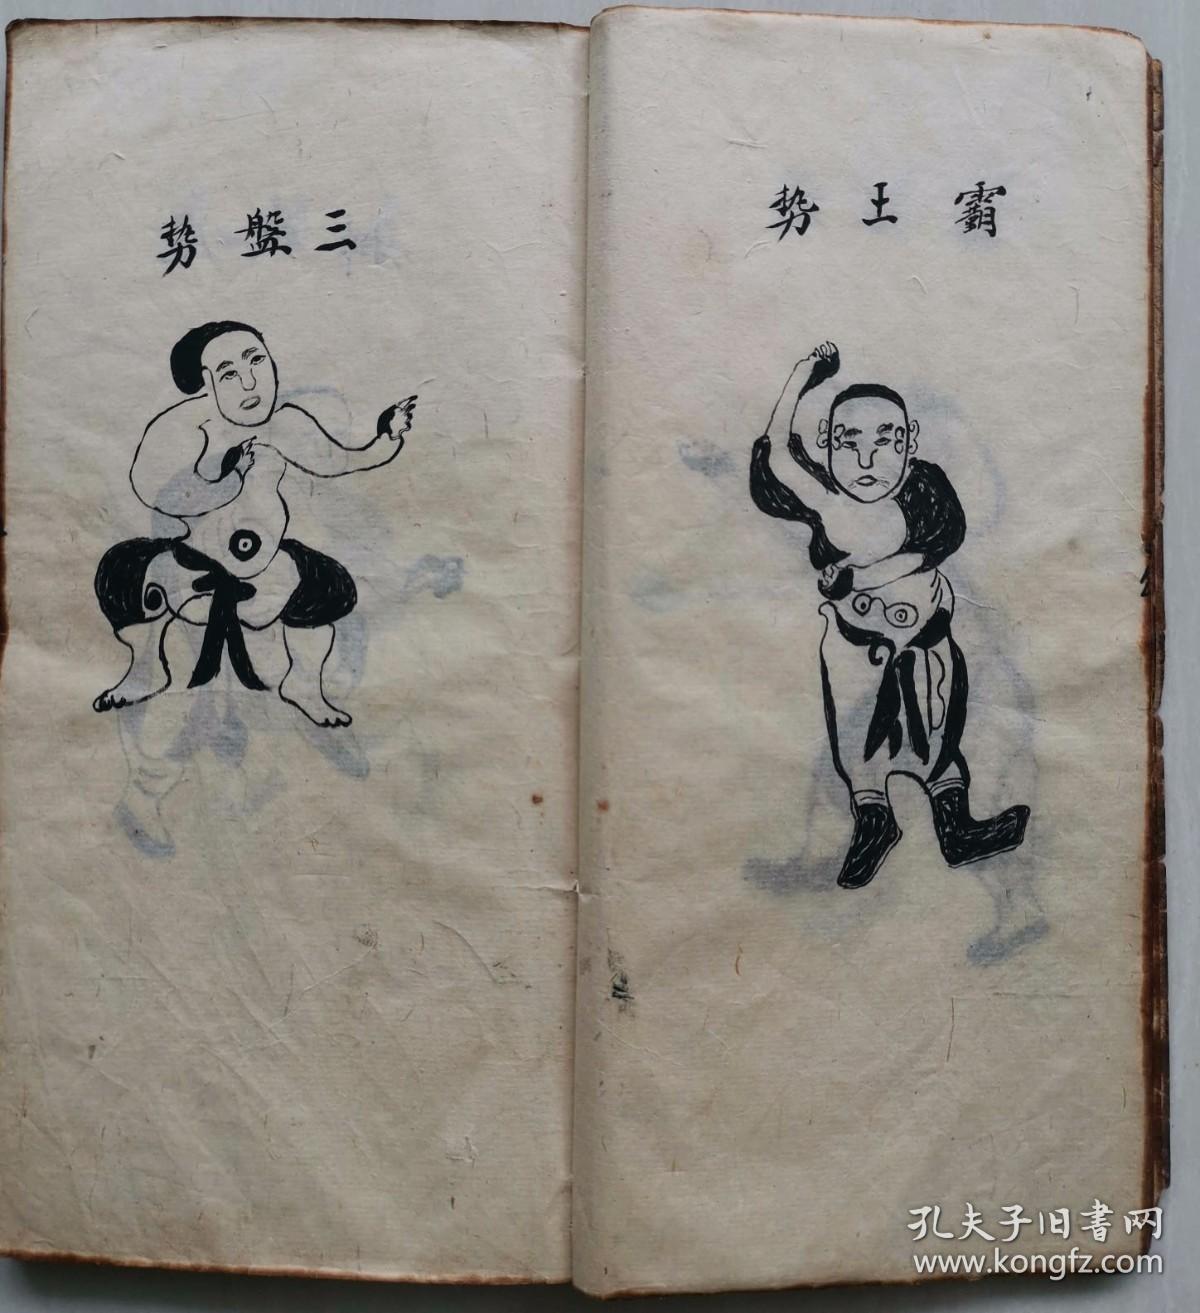 霸王势
三盤势
孔夫子旧書网
www.kongfz.com